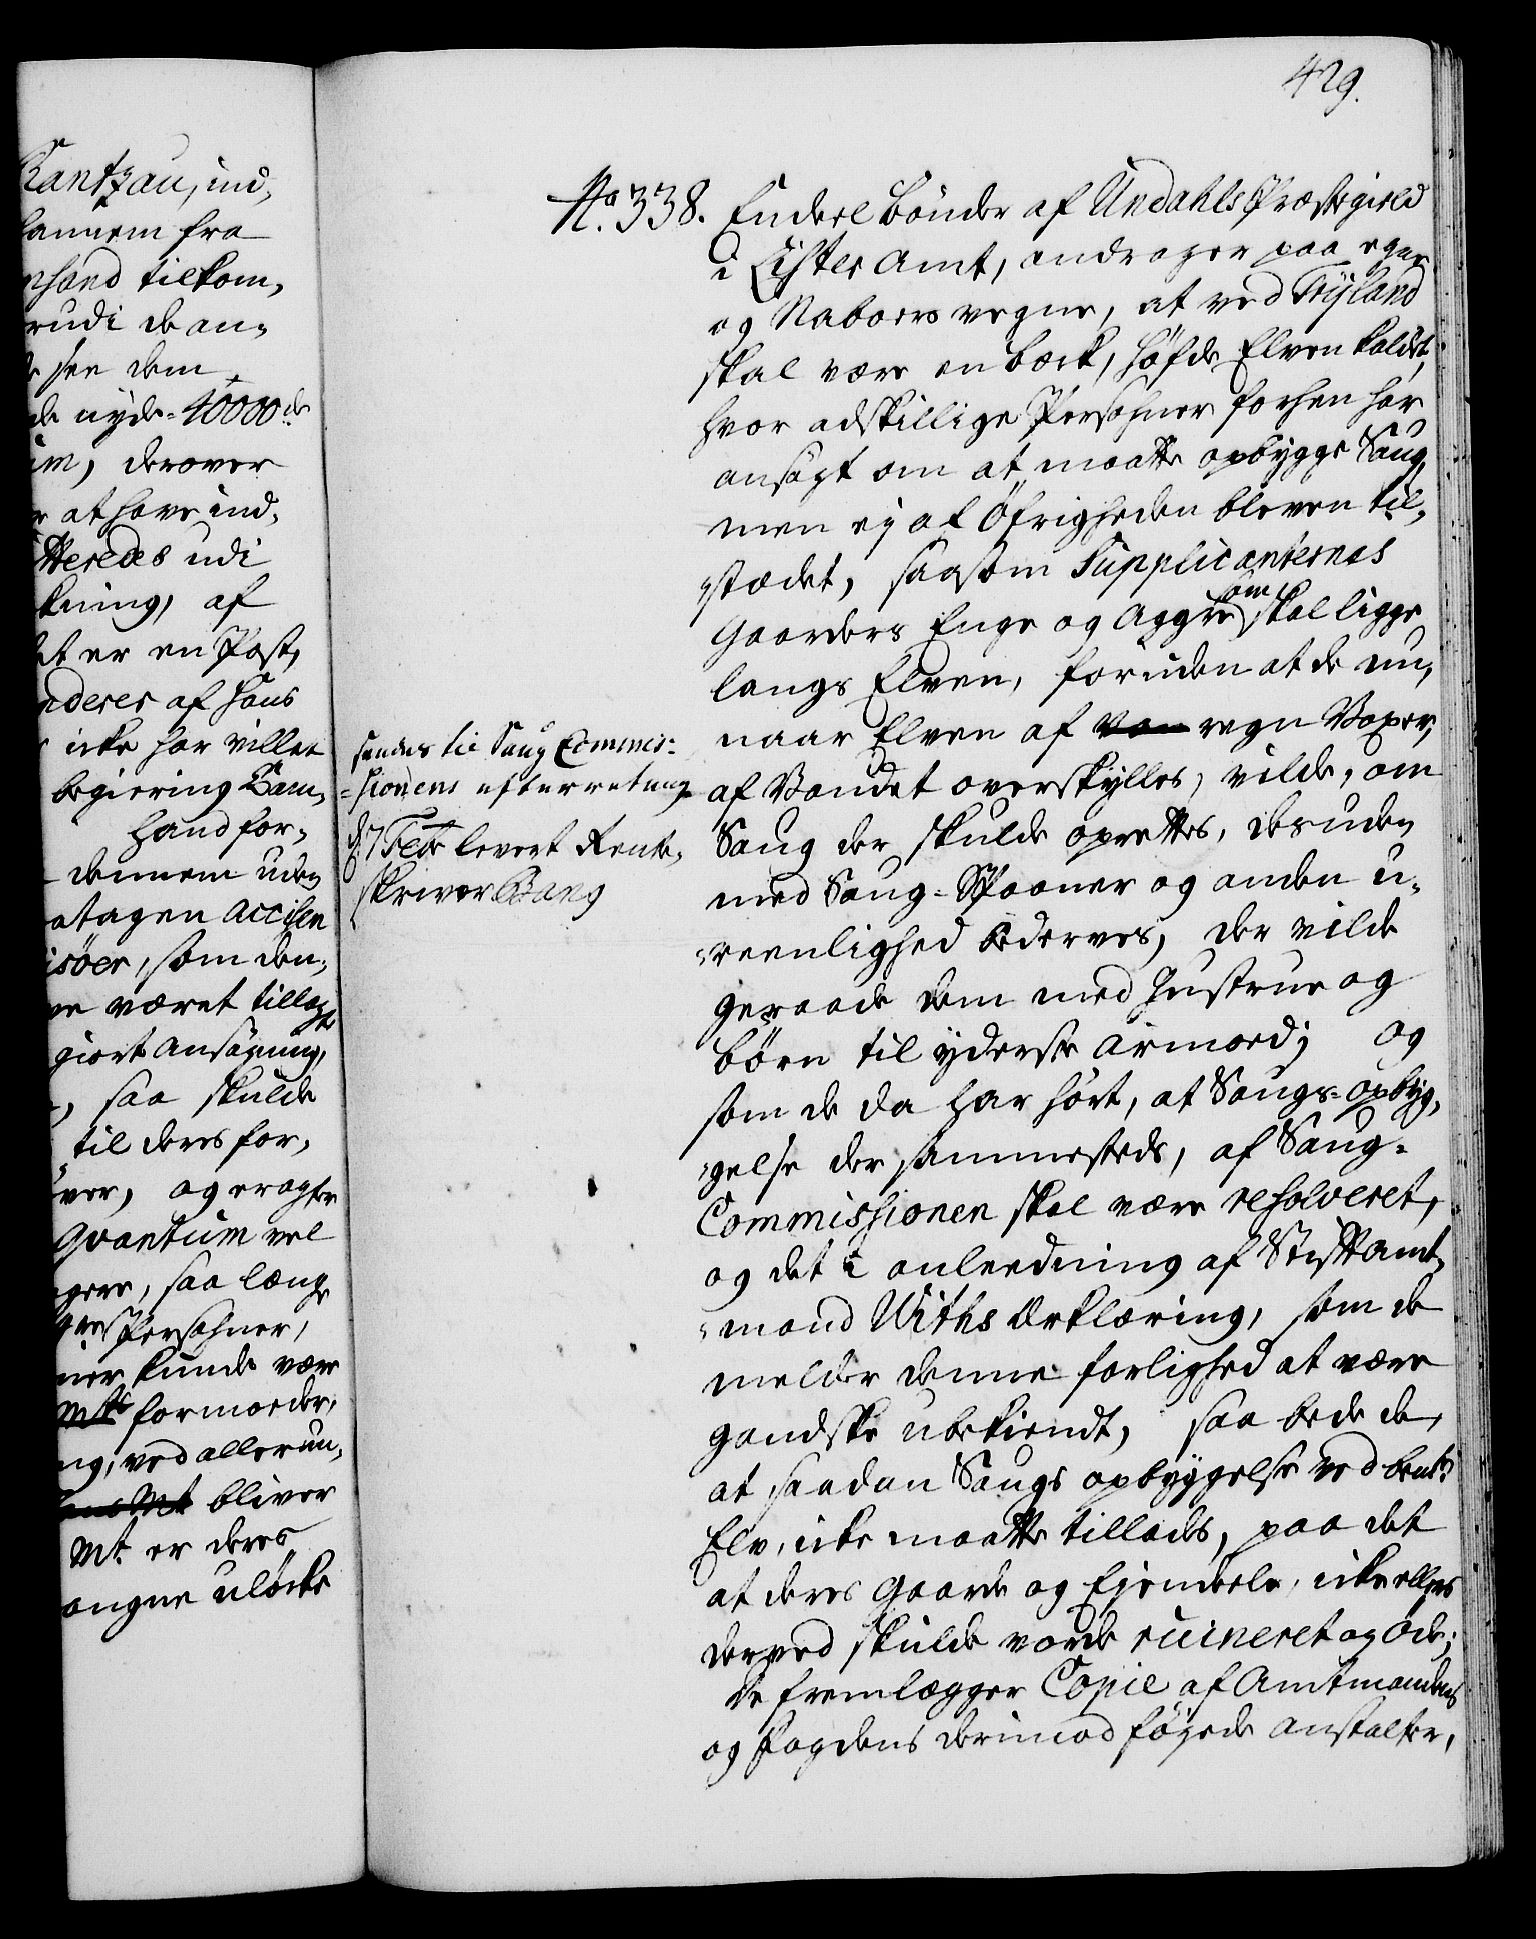 429.
Rantzau, ind,
fra
tilkom,
rudi de an,
see dem
de nyde 40000 d
im, derover
at have ind,
Heredes udi
kning, af
et er en Post,
nderes af Hans
icke har villet
begiering
Hand for,
dennem uden
atagen Accisen
isöer, som den,
ve været tillagt
giort Ansögning,
, saa skulde
til deres for,
ver, og eragter
Qvantum vel
gere, saa længe
Persohner,
kunde være
Mts formoeder,
ng, ved allerun,
Mt bliver
Mt er deres
angne ulöcke
No. 338. Endeel Bönder af Undahls Præstegield
i Lister Amt, andrager paa egne
og Naboers vegne, at ved Trÿland
skal være en Beck, Höfde Elven kaldet,
hvor adskillige Persohner forhen har
ansögt om at maatte opbygge Saug,
men ej af Öfrigheden bleven til,
stædet, saasom Supplicanternes
Gaarders Enge og Aggre som skal ligge
langs Elven, foruden at de nu,
naar Elven af regn Voxer,
af Vandet overskylles, vilde, om
Saug der skulde oprettes, desuden
med Saug-Spaaner og anden u,
reenlighed bederves, der vilde
geraade dem med Hustrue og
börn til yderste Armoed; og
som de da har hört, at Saugs-opbÿg,
gelse der sammesteds, af Saug-
Commissionen skal være resolveret,
og det i anleedning af Stiftamt,
mand Withs Erklæring, som de
melder denne forlighed at være
gandske ubekiendt, saa bede de,
at saadan Saugs opbyggelse ved bem.te
Elv, icke maatte tillades, paa det
at deres Gaarde og Ejendeele, icke ellers
derved skulde vorde ruineret og Öde;
De fremlægger Copie af Amtmandens
og Fogdens derimod föjede Anstalter,
sendes til Saug Commis:
sionens efterretning
d. 7 Febr levert Rente,
skriver Bang